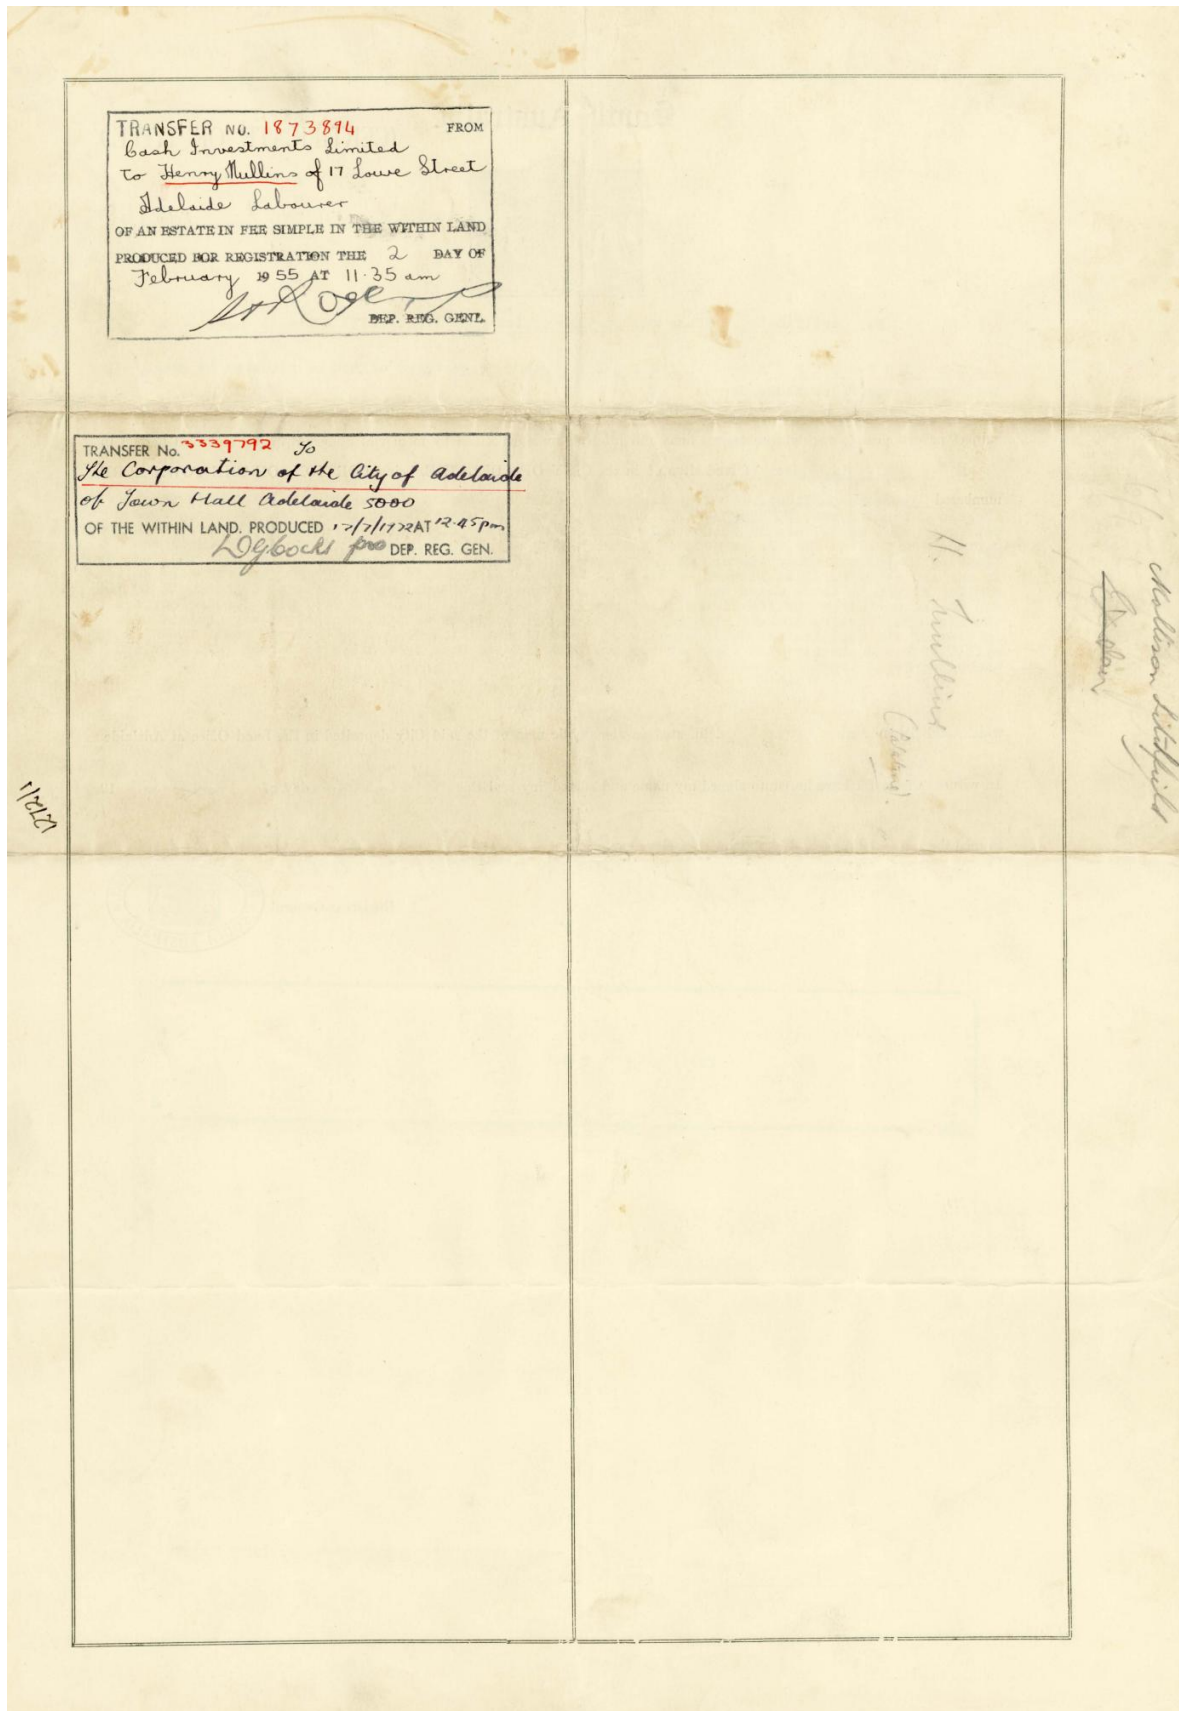 TRANSFER No. 1873894 FROM
Cash Investments Limited
to Henry Mullins of 17 Lowe Street
Adelaide Labourer
OF AN ESTATE IN FEE SIMPLE IN THE WITHIN LAND
PRODUCED FOR REGISTRATION THE 2 DAY OF
February 1955 AT 11.35 am
DEP. REG. GENL.
TRANSFER No. 3339792 To
The Corporation of the City of Adelaide
of Town Hall Adelaide 5000
OF THE WITHIN LAND. PRODUCED 17/7/1972 AT 12.45pm
pro DEP. REG. GEN.
H. Mullins
Mollison Litchfield